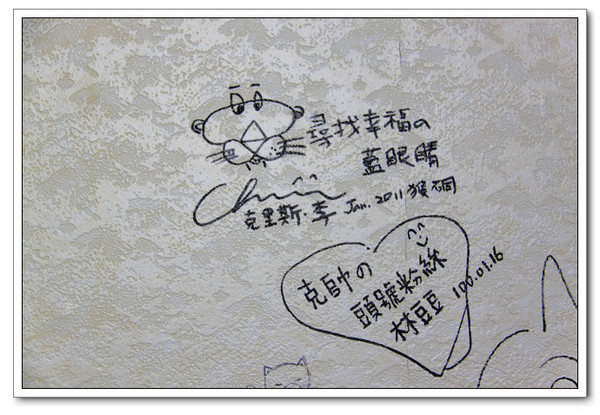 尋找幸福の
藍眼睛
克里斯·李 Jan. 2011 猴硐
克帥の
頭號粉絲
林豆豆 100.01.16